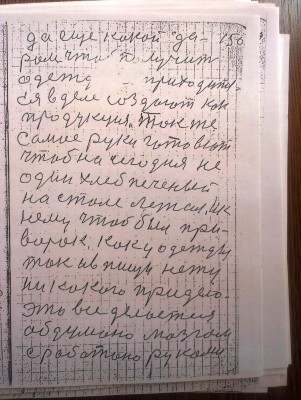 да еще какой да- 150
ром чтоб получить
одежд – приходит
ся в деле создают как
продукция. Также
самое руки готовят
чтоб на сегодня не
один хлеб печеный
на столе лежал, и к
нему чтоб был при-
варок. Как у одежды
так и в пищи нету
ни какого придела
это все делается
обдумано мозгом
сработано руками